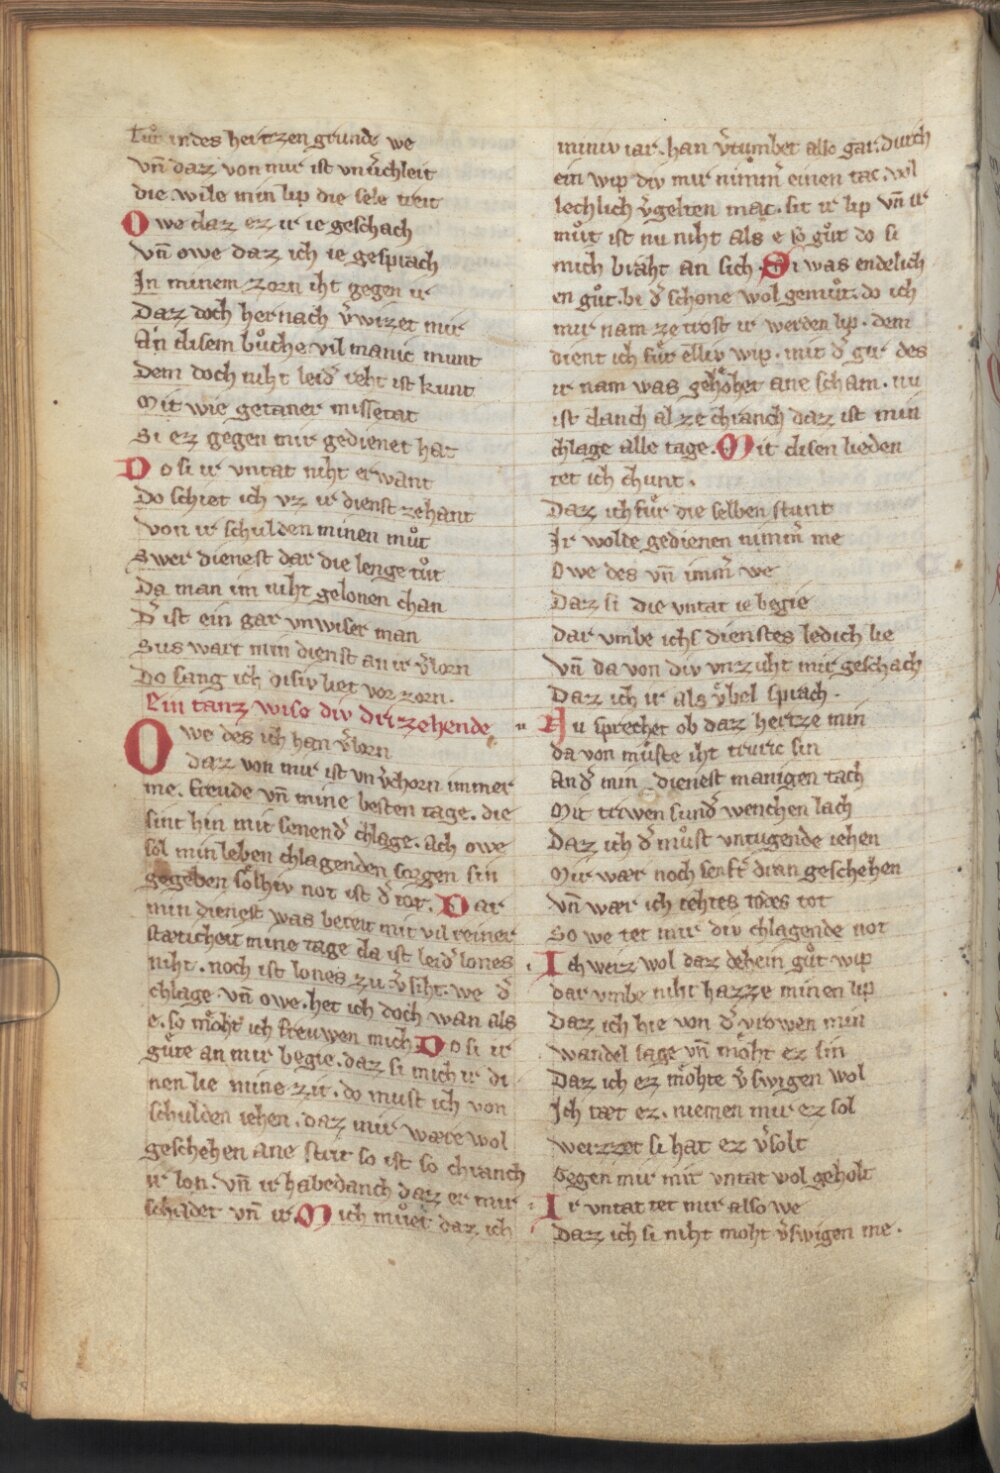 Tuͦt in des hertzen grunde we
vn̄ daz von mir ist vnv̓ichleit
die wile min lip die sele treit
Owe daz ez ir ie geschach
vn̄ owe daz ich ie gesprach
In minem zorn iht gegen ir
Daz doch her nach v̓wizet mir
An disem buͦche vil manic munt
Dem doch niht leid̓ reht ist kunt
Mit wie getaner missetat
Si ez gegen mir gedienet hat
Do si ir vntat niht erwant
Do schiet ich vz ir dienst zehant
Von ir schulden minen muͦt
Swer dienest dar die lenge tuͦt
Da man im niht gelonen chan
D̓ ist ein gar vnwiser man
Sus wart min dienst an ir v̓lorn
Do sang ich disiv liet vor zorn.
Ein tanz wise div drizehende
Owe des ich han v̓lorn
daz von mir ist vnv̓chorn immer
me. freude vn̄ mine besten tage. die
sint hin mit senend̓ chlage. Ach owe
sol min leben chlagenden sorgen sin
gegeben soͤlhiv not ist d̓ tot. Dar
min dienest was bereit mit vil reiner
stæticheit mine tage da ist leid̓ lones
niht. noch ist lones zu v̓siht. we d̓
chlage vn̄ owe. het ich doch wan als
e. so moͤht ich freuwen mich Do si ir
guͤte an mir begie. daz si mich ir di
nen lie mine zit. do must ich von
schulden iehen. daz mir wære wol
geschehen ane strit so ist so chranch
ir lon. vn̄ ir habedanch daz er mir
schadet vn̄ ir Mich muͤet daz ich
miniv iar. han v̓tumbet also gar. durch
ein wip div mir nimm̓ einen tac. wol
lechlich v̓gelten mac. sit ir lip vn̄ ir
muͦt ist nu niht als e so guͦt do si
mich braht an sich. Si was endelich
en guͦt. bi d̓ schone wol gemuͦt. do ich
mir nam ze trost ir werden lip. dem
dient ich fuͤr elliv wip. mit d̓ gir des
ir nam was gehoͤhet ane scham. nu
ist danch al ze chranch daz ist min
chlage alle tage. Mit disen lieden
tet ich chunt.
Daz ich fuͤr die selben stunt
Ir wolde gedienen nimm̓ me
Owe des vn̄ imm̓ we
Daz si die vntat ie begie
Dar vmbe ichs dienstes ledich lie
Vn̄ da von div vnzuht mir geschach
Daz ich ir als vͤbel sprach.
Nu sprechet ob daz hertze min
da von muͤste iht truric sin
And̓ min dienest manigen tach
Mit triwen sund̓ wenchen lach
Daz ich d̓ muͦst vntugende iehen
Mir wær noch senft̓ dran geschehen
Vn̄ wær ich rehtes todes tot
So we tet mir div chlagende not
Ich weiz wol daz dehein guͦt wip
dar vmbe niht hazze minen lip
Daz ich hie von d̓ vrowen min
wandel sage vn̄ moͤht ez sin
Daz ich ez moͤhte v̓swigen wol
Ich tæt ez. niemen mir ez sol
weizzet si hat ez v̓solt
Gegen mir mit vntat wol geholt
Ir vntat tet mir also we
Daz ich si niht moht v̓swigen me.